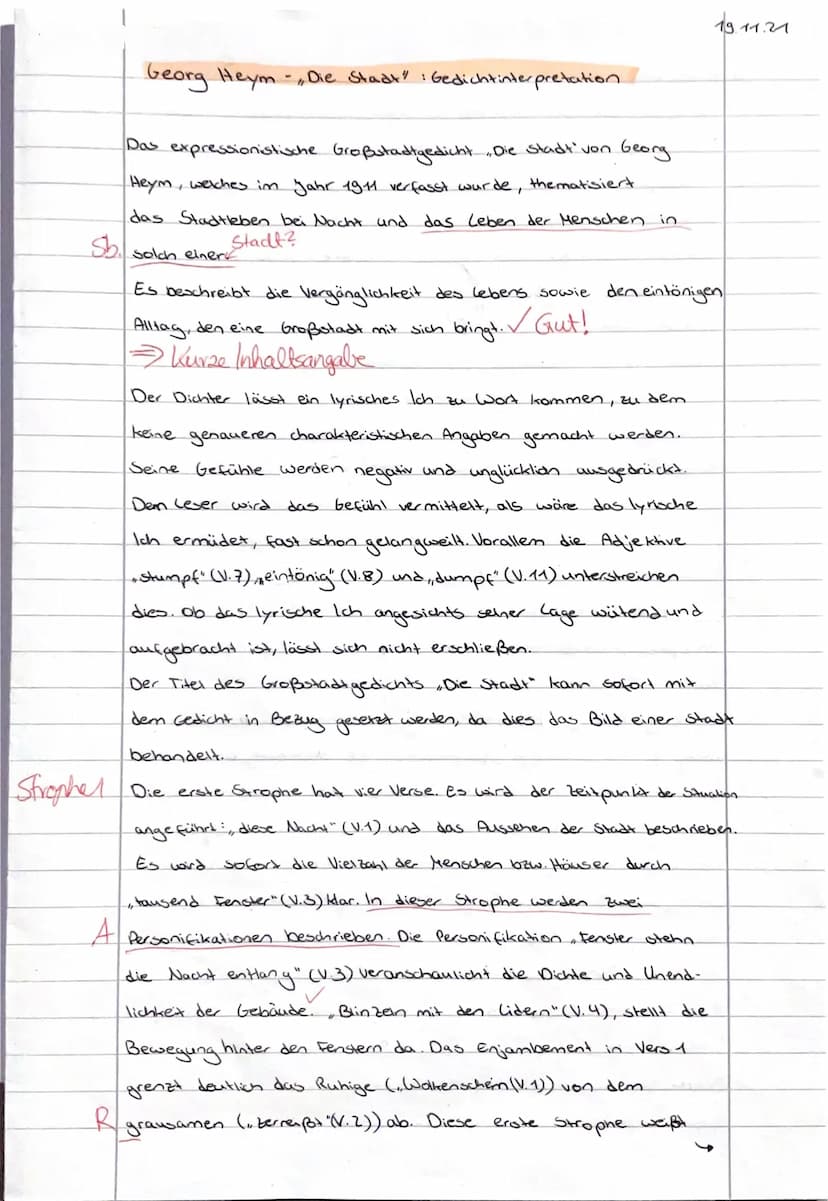 19.11.21
Georg Heym - „Die Stadt" : Gedichtinterpretation
Das expressionistische Großstadtgedicht „Die Stadt" von Georg
Heym, welches im Jahr 1911 verfasst wurde, thematisiert
das Stadtleben bei Nacht und das Leben der Menschen in
Sb. solch einer Stadt?
Es beschreibt die Vergänglichkeit des Lebens sowie den eintönigen
Alltag, den eine Großstadt mit sich bringt. ✓ Gut!
⇒ Kurze Inhaltsangabe
Der Dichter lässt ein lyrisches Ich zu Wort kommen, zu dem
keine genaueren charakteristischen Angaben gemacht werden.
Seine Gefühle werden negativ und unglücklich ausgedrückt.
Dem Leser wird das Gefühl vermittelt, als wäre das lyrische
Ich ermüdet, fast schon gelangweilt. Vorallem die Adjektive
„stumpf" (V.7), „eintönig" (V.8) und „dumpf" (V.11) unterstreichen
dies. Ob das lyrische Ich angesichts seiner Lage wütend und
aufgebracht ist, lässt sich nicht erschließen.
Der Titel des Großstadtgedichts „Die Stadt" kann sofort mit
dem Gedicht in Bezug gesetzt werden, da dies das Bild einer Stadt
behandelt.
Strophe 1 Die erste Strophe hat vier Verse. Es wird der Zeitpunkt der Situation
angeführt: „diese Nacht" (V.1) und das Aussehen der Stadt beschrieben.
Es wird sofort die Vielzahl der Menschen bzw. Häuser durch
„tausend Fenster" (V.3) klar. In dieser Strophe werden zwei
A Personifikationen beschrieben. Die Personifikation „Fenster stehn
die Nacht entlang" (V.3) veranschaulicht die Dichte und Unend-
lichkeit der Gebäude. ✓ „Blinzeln mit den Lidern" (V.4), stellt die
Bewegung hinter den Fenstern da. Das Enjambement in Vers 1
grenzt deutlich das Ruhige („Wolkenschein (V.1)) von dem
R grausamen („zerreißt" (V.2)) ab. Diese erste Strophe weißt
→